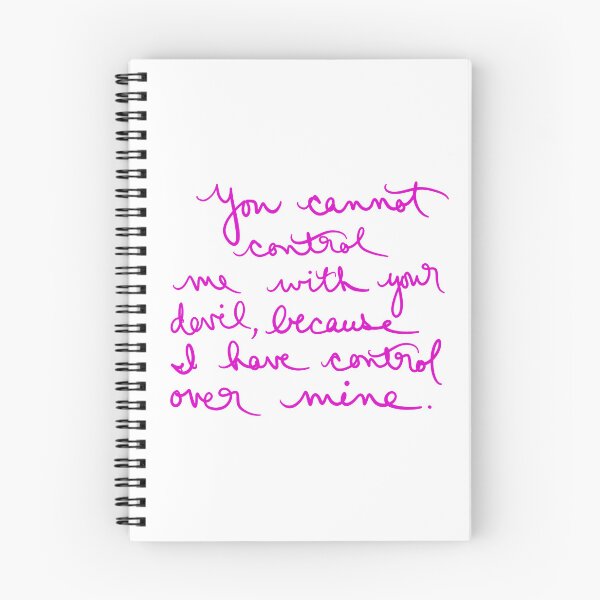 You cannot
control
me with your
devil, because
I have control
over mine.